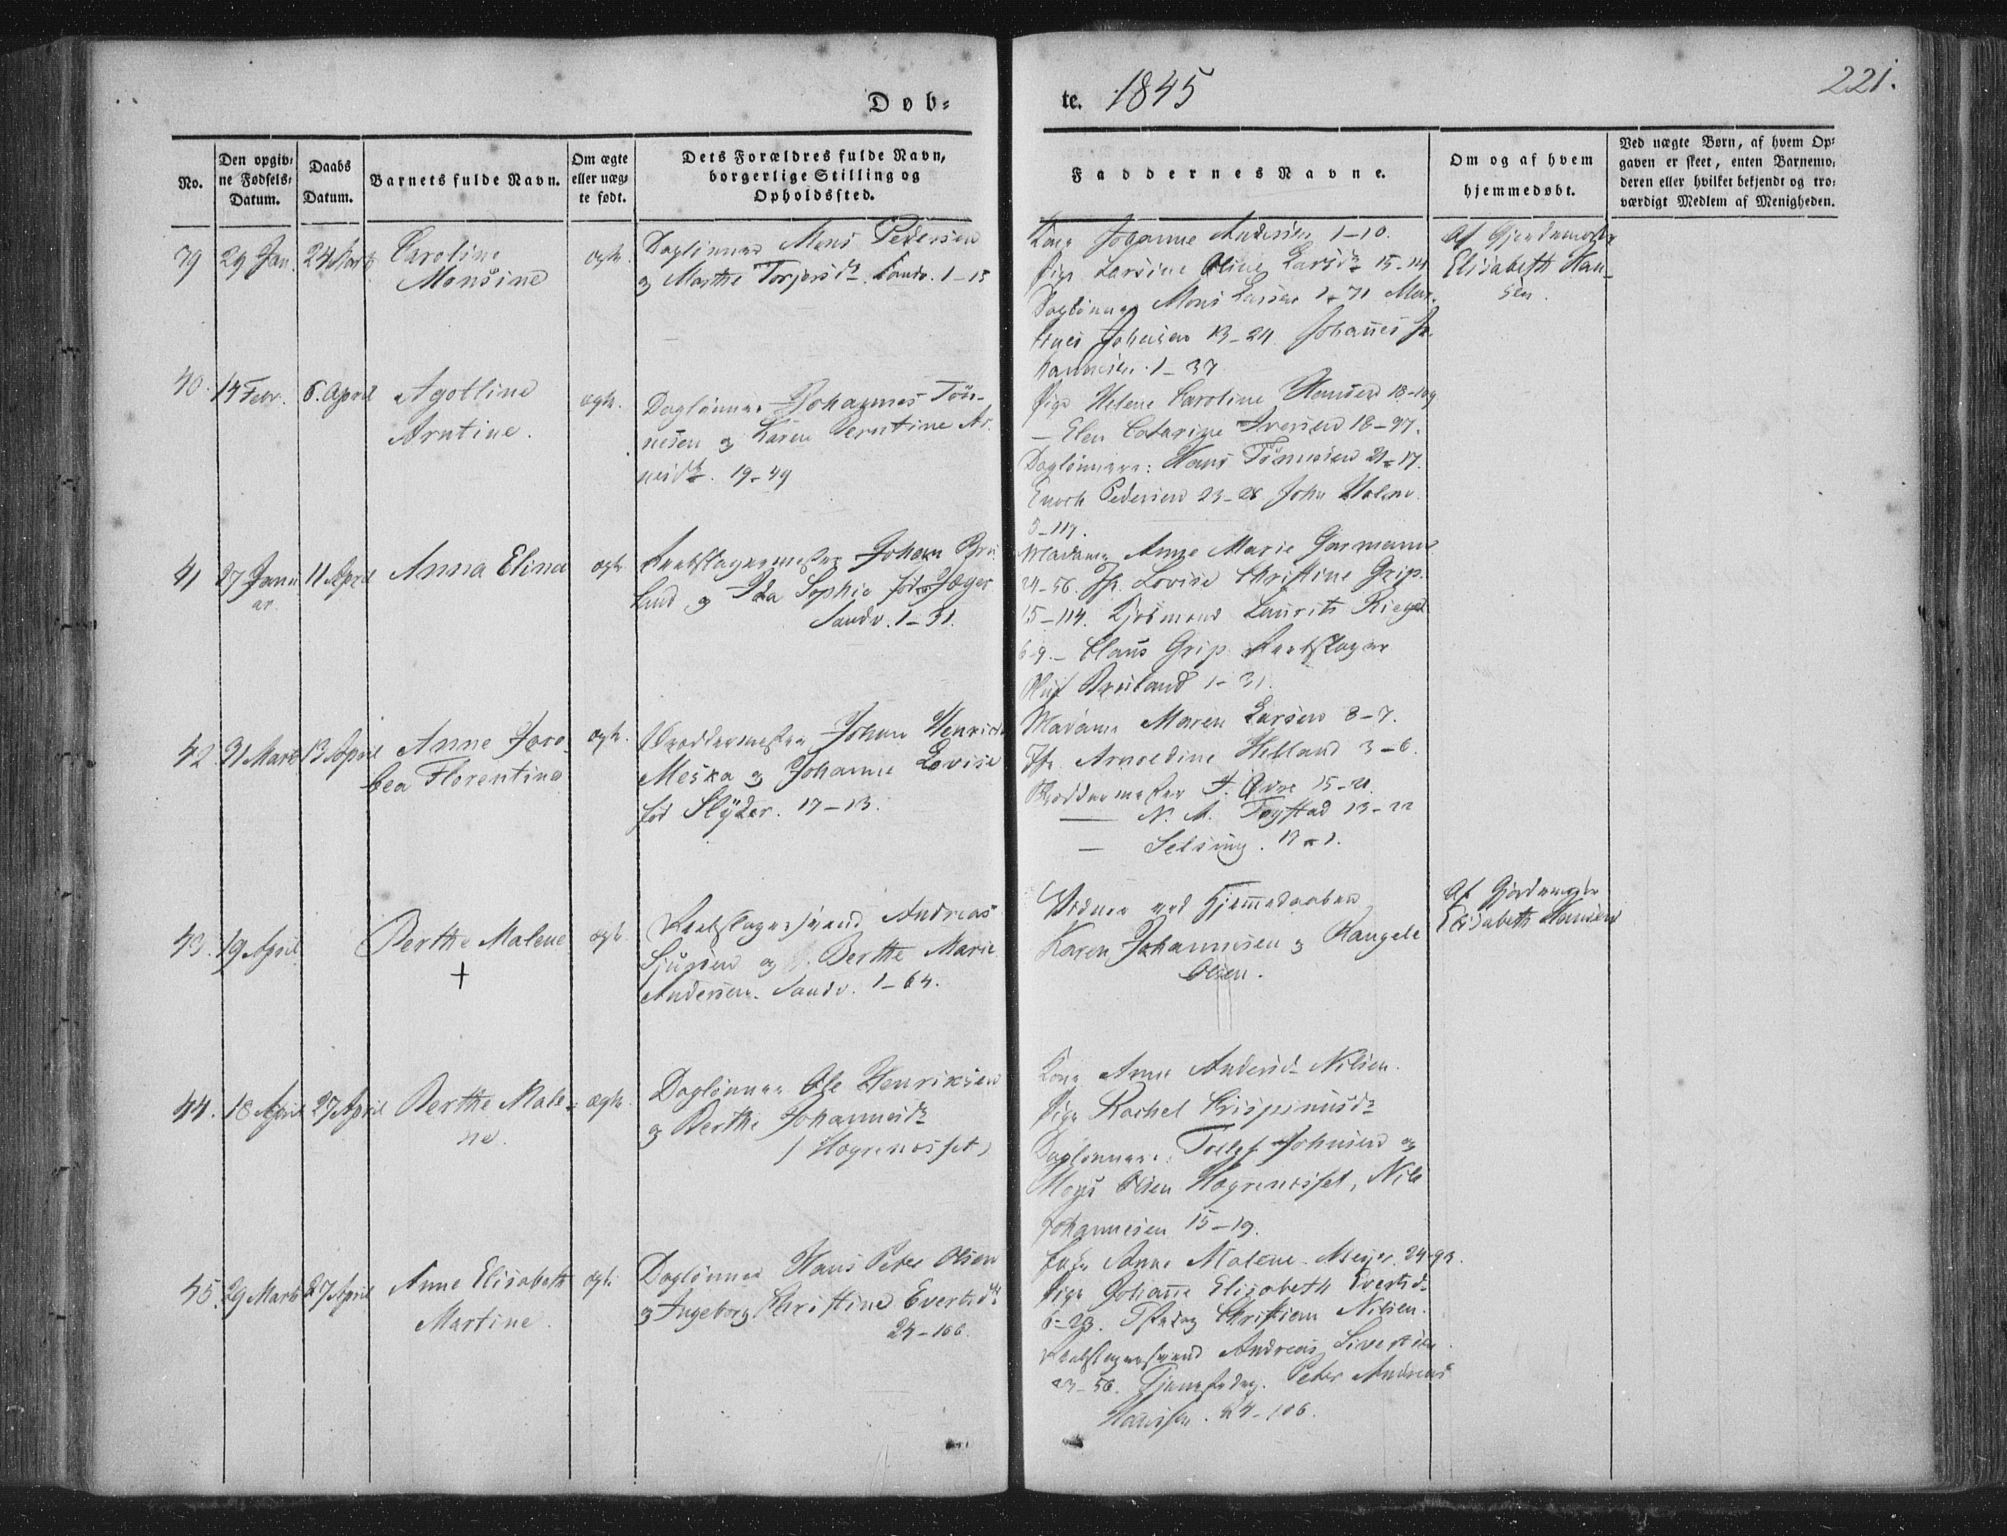 Døb-
te. 1845
221.
No.
Den opgiv-
ne Fødsels-
Datum.
Daabs
Datum.
Barnets fulde Navn.
Om ægte
eller uæg-
te født.
Dets Forældres fulde Navn,
borgerlige Stilling og
Opholdssted.
Faddernes Navne.
Om og af hvem
hjemmedøbt.
Ved uægte Børn, af hvem Op-
gaven er skeet, enten Barnemo-
deren eller hvilket bekjendt og tro-
værdigt Medlem af Menigheden.
39 29 Jan. 24 Marts
Caroline
Monsine
ægte.
Daglønner Mons Pedersen
og Marthe Torjersd. Sandv. 1-15
Kone Johanne Andersen 1-10.
Pige Larsine Oline Larsd. 15-114
Daglønner Mons Larsen 1-71 Mar-
Johnsen 13-24. Johannes Jo-
hannesen. 1-37
Af Gjordemoder
Elisabeth Han-
sen.
40. 14 Febr. 6. April
Agolline
Arntine.
ægte.
Daglønner Johannes Tøn-
nesen og Karen Berntine Ar-
nesd. 19-49
Pige Helene Caroline Hansen 18-109
— Elen Catarine Iversen 18-97.
Daglønnere: Hans Tønnesen 21-17.
Enoch Pedersen 23-28 John Holme
5-119.
41 27 Janu-
ar.
11 April
Anna Elina
ægte.
Reebslagermester Johan Bru-
land og Ida Sophie fød Jæger
Sandv. 1-31.
Madame Anne Marie Garmann
24-56. Jfr. Lovise Christine Grip.
15-114. Kjøbmand Laurits Rieg
6-9 - Claus Grip Reebslager
Bruland 1-31.
42 31 Marts 13 April
Anne Jaco-
bea Florentine
ægte.
Bøddermester Johan Henrich
Meska og Johanne Lovise
fød Slyder. 17-13.
Madame Maren Larsen 8-7.
Jfr. Arnoldine Helland 3-6.
Bøddermester A. Øvre 15-21.
— N. A. Tegstad 13-22
— Selsing. 17-1.
43. 19 April
Berthe Malene
+
ægte.
Reebslagersvend Andreas
Sjursen og Berthe Marie
Andersen. Sandv. 1-64.
Vidner ved Hjemmedaaben
Karen Johannesen og Rangele
Olsen.
Af Gjordemoder
Elisabeth Hansen
44. 18 April 27 April
Berthe Male-
ne.
ægte.
Daglønner Ole Henriksen
og Berthe Johannesd.
(Høgrenæsset)
Kone Anne Andersd. Nilsen.
Pige Rachel Crispinusd.
Daglønnere: Tollef Johnsen og
Mons Olsen Høgrenæsset, Nils
Johannesen 15-19.
45. 29 Marts 27 April
Anne Elisabeth
Martine.
ægte.
Daglønner Hans Peter Olsen
og Ingeborg Christine Evertsd.
24-106.
Enke Anne Malene Meyer 24-93.
Pige Johanne Elisabeth Evertsd.
6-23. Christian Nilsen.
Reebslagersvend Andreas Sivertsen
23-56. Tjenestedreng. Peter Andreas
Hansen. 24-106.